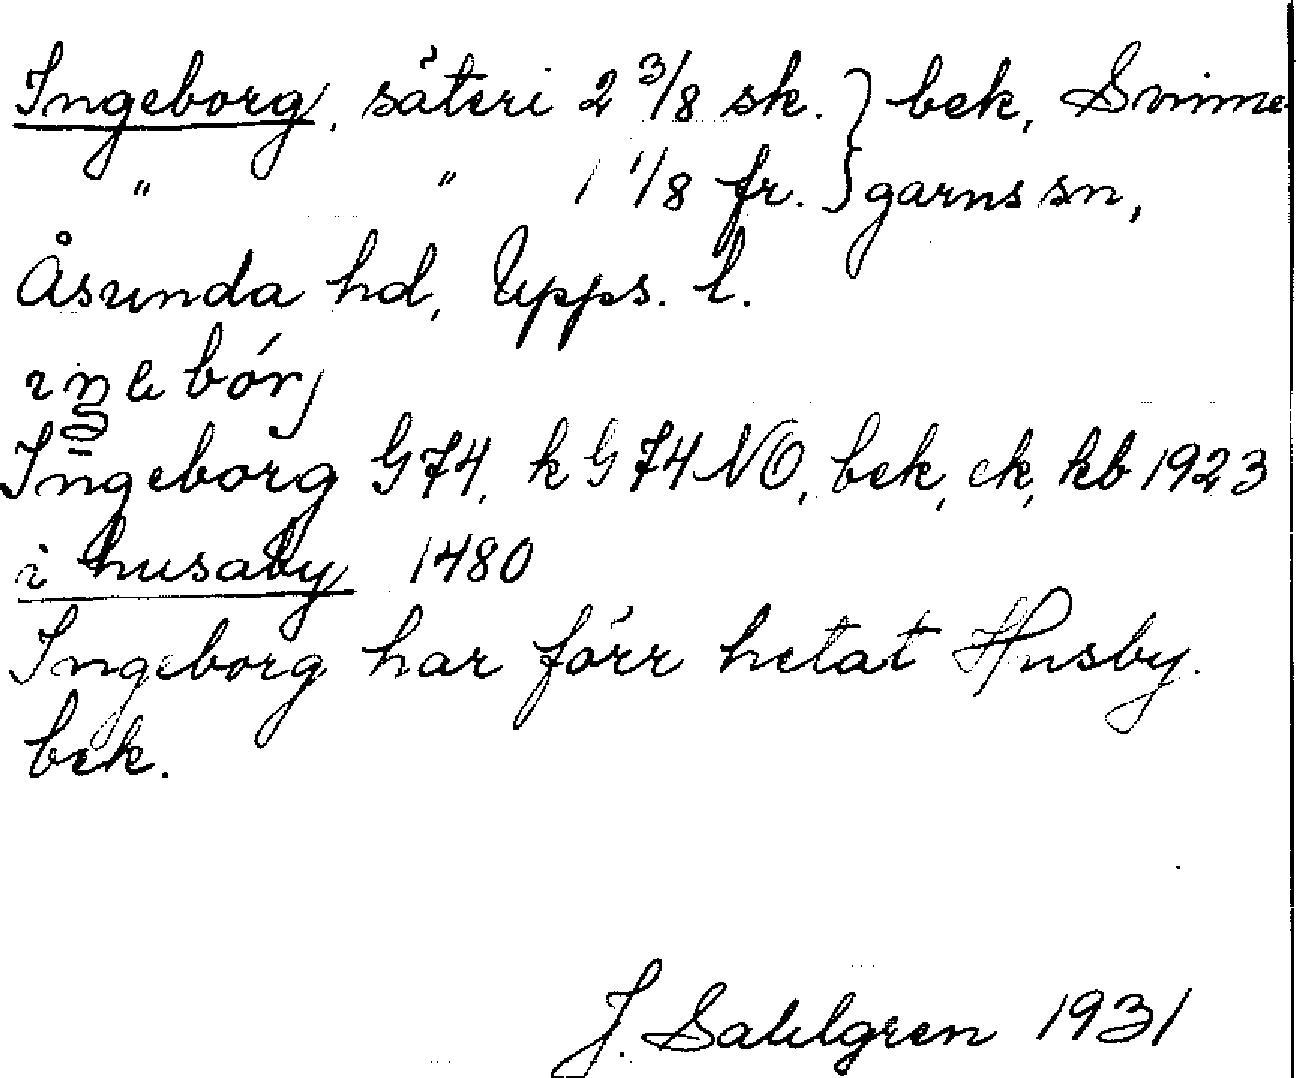 Ingeborg, säteri 2 3/8 sk. } bek, Svinne
" " 1 1/8 fr. } garns sn,
Åsunda hd, Upps. l.
Ingeborg G74, k G74NO, bek, ek, kb 1923
i husaby 1480
Ingeborg har förr hetat Husby.
bek.
J. Sahlgren 1931